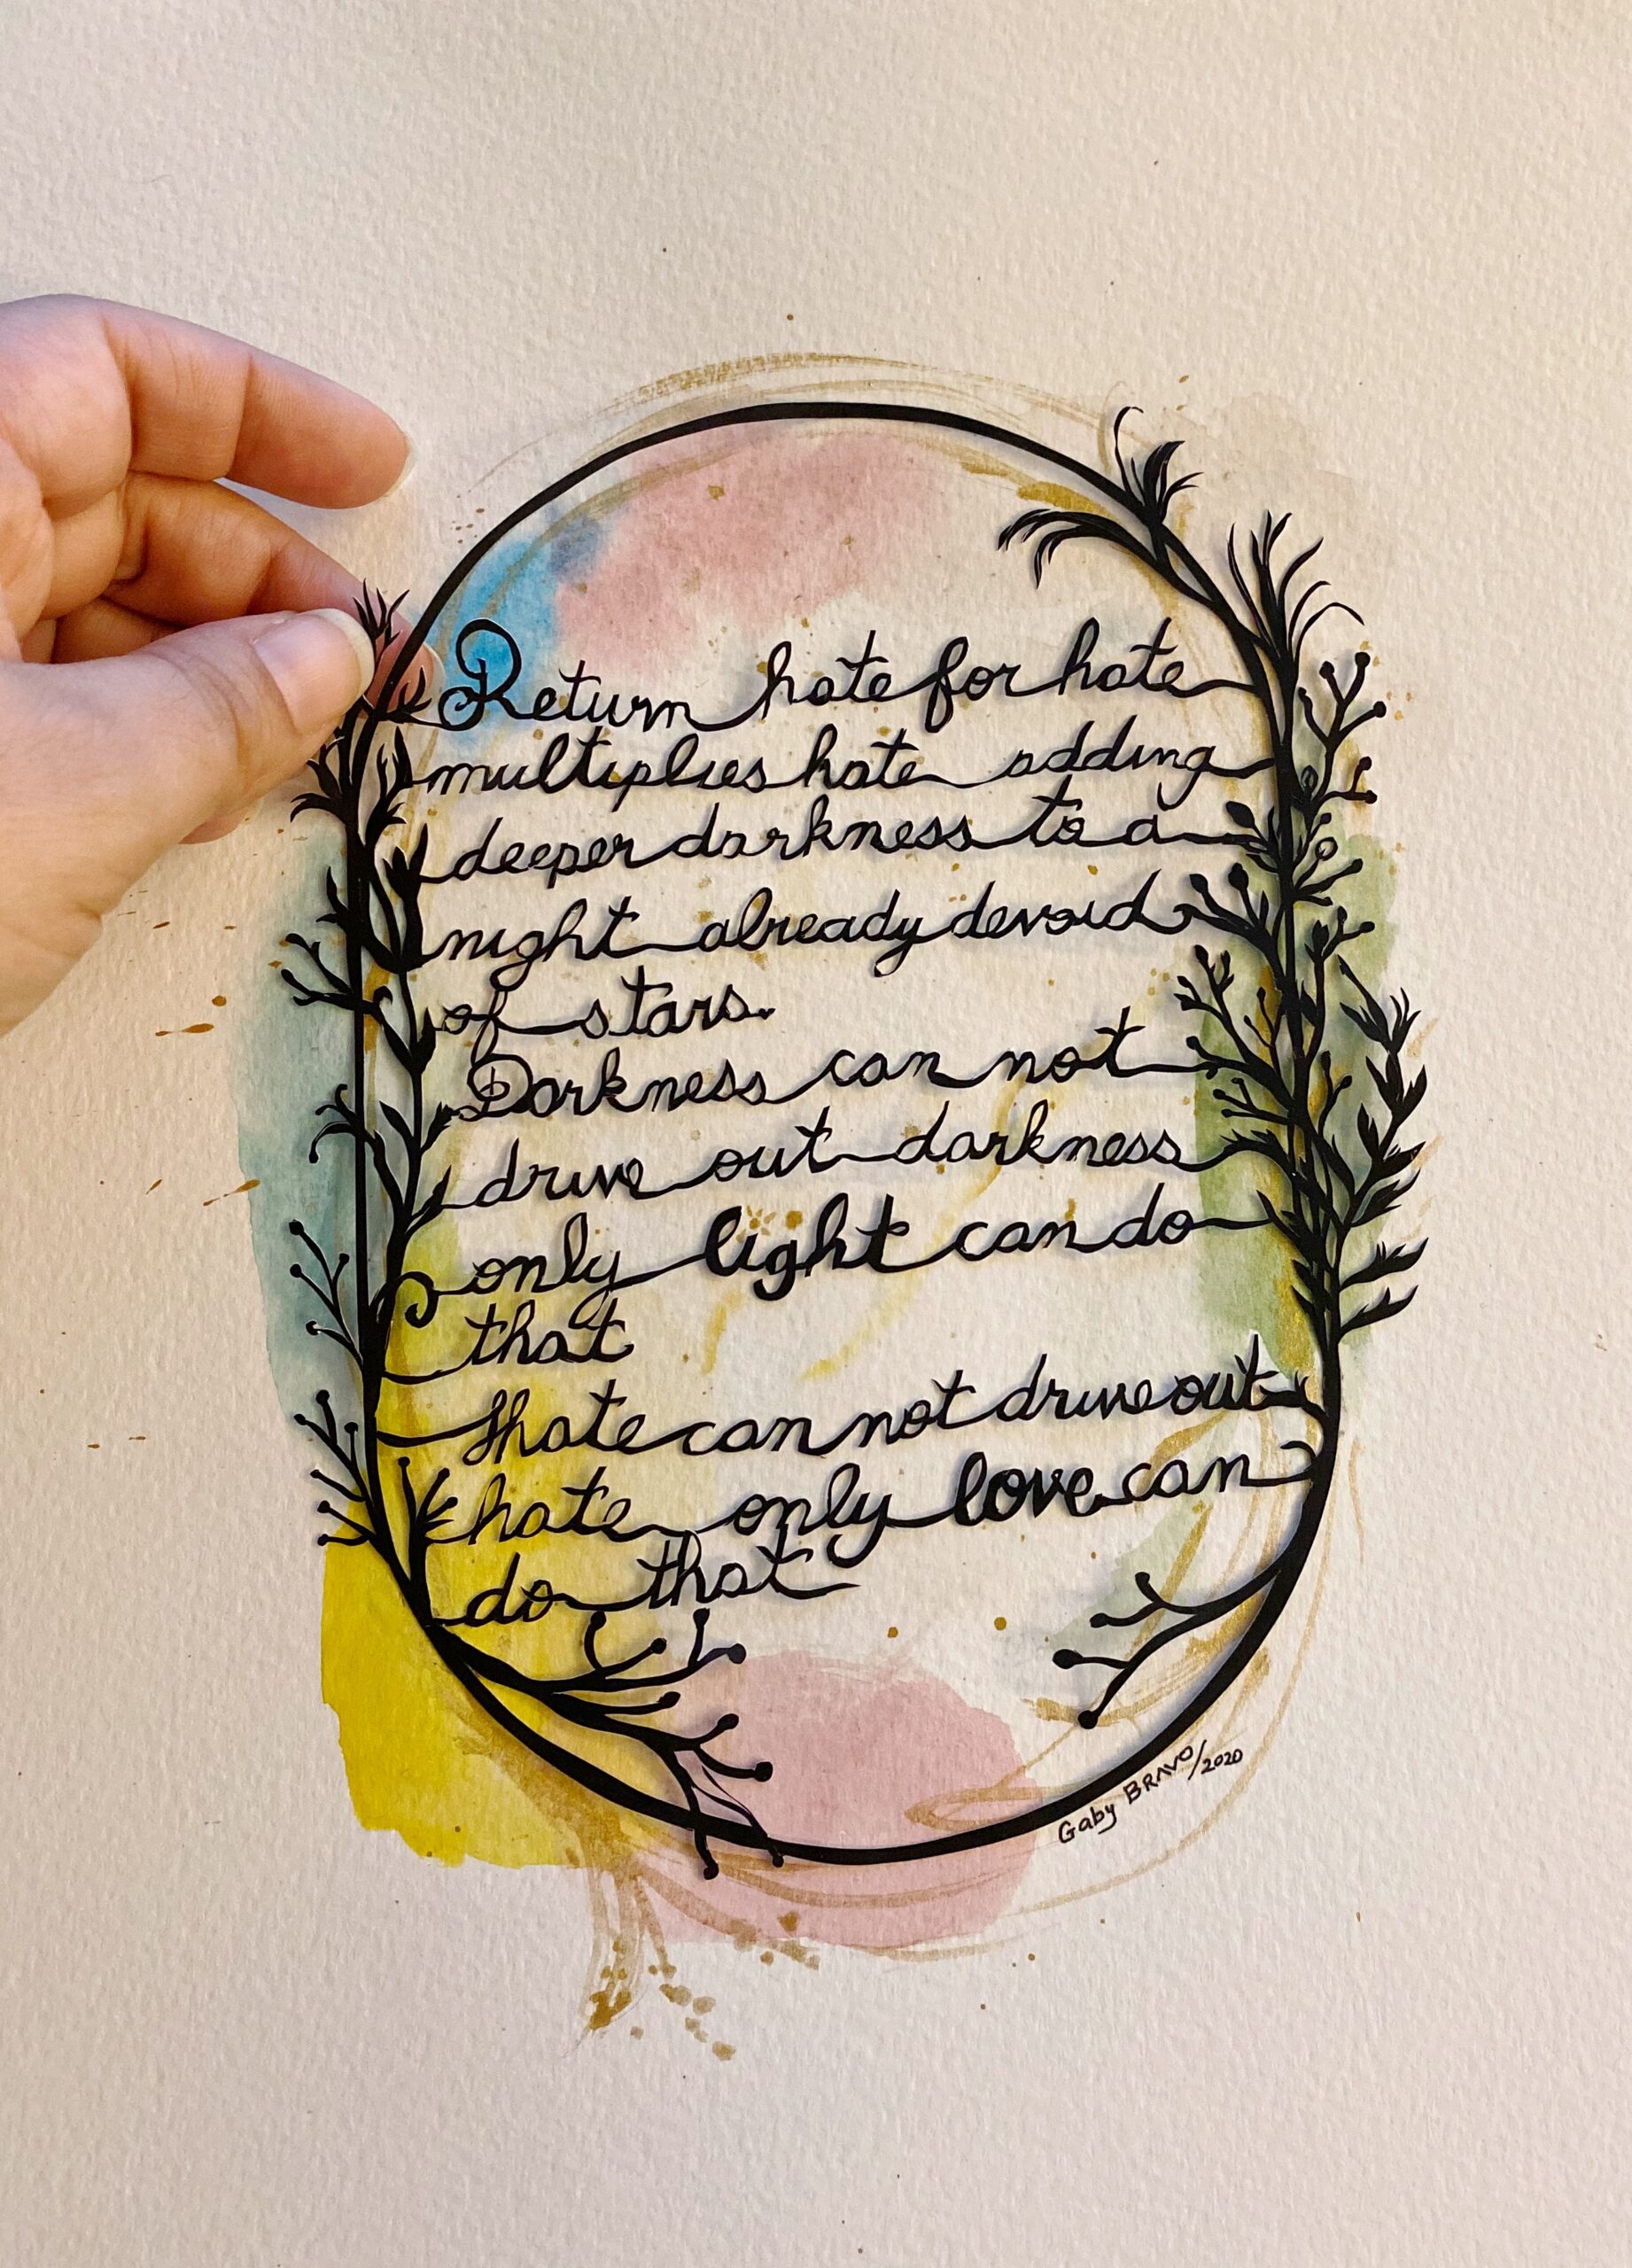 Return hate for hate
multiplies hate adding
deeper darkness to a
night already devoid
of stars.
Darkness can not
drive out darkness
only light can do
that
Hate can not drive out
hate only love can
do that
Gaby BRAVO/2020